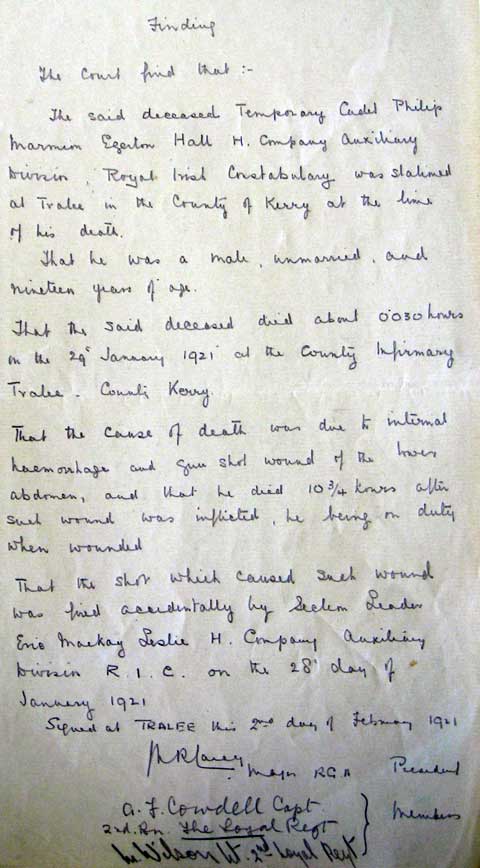 Finding
The Court find that :-
The said deceased Temporary Cadet Philip
Marmion Egerton Hall H. Company Auxiliary
Division, Royal Irish Constabulary was stationed
at Tralee in the County of Kerry at the time
of his death.
That he was a male, unmarried, and
nineteen years of age.
That the said deceased died about 0030 hours
on the 29th January 1921 at the County Infirmary
Tralee - County Kerry.
That the cause of death was due to internal
haemorrhage and gun shot wound of the lower
abdomen, and that he died 10 3/4 hours after
such wound was inflicted, he being on duty
when wounded
That the shot which caused such wound
was fired accidentally by Section Leader
Eric Mackay Leslie H. Company Auxiliary
Division R.I.C. on the 28th day of
January 1921
Signed at TRALEE this 2nd day of February 1921
Major RGA President
A. F. Cowdell Capt.
2nd. Bn. The Loyal Regt
Wilson Lt. 2nd Loyal Regt
Members